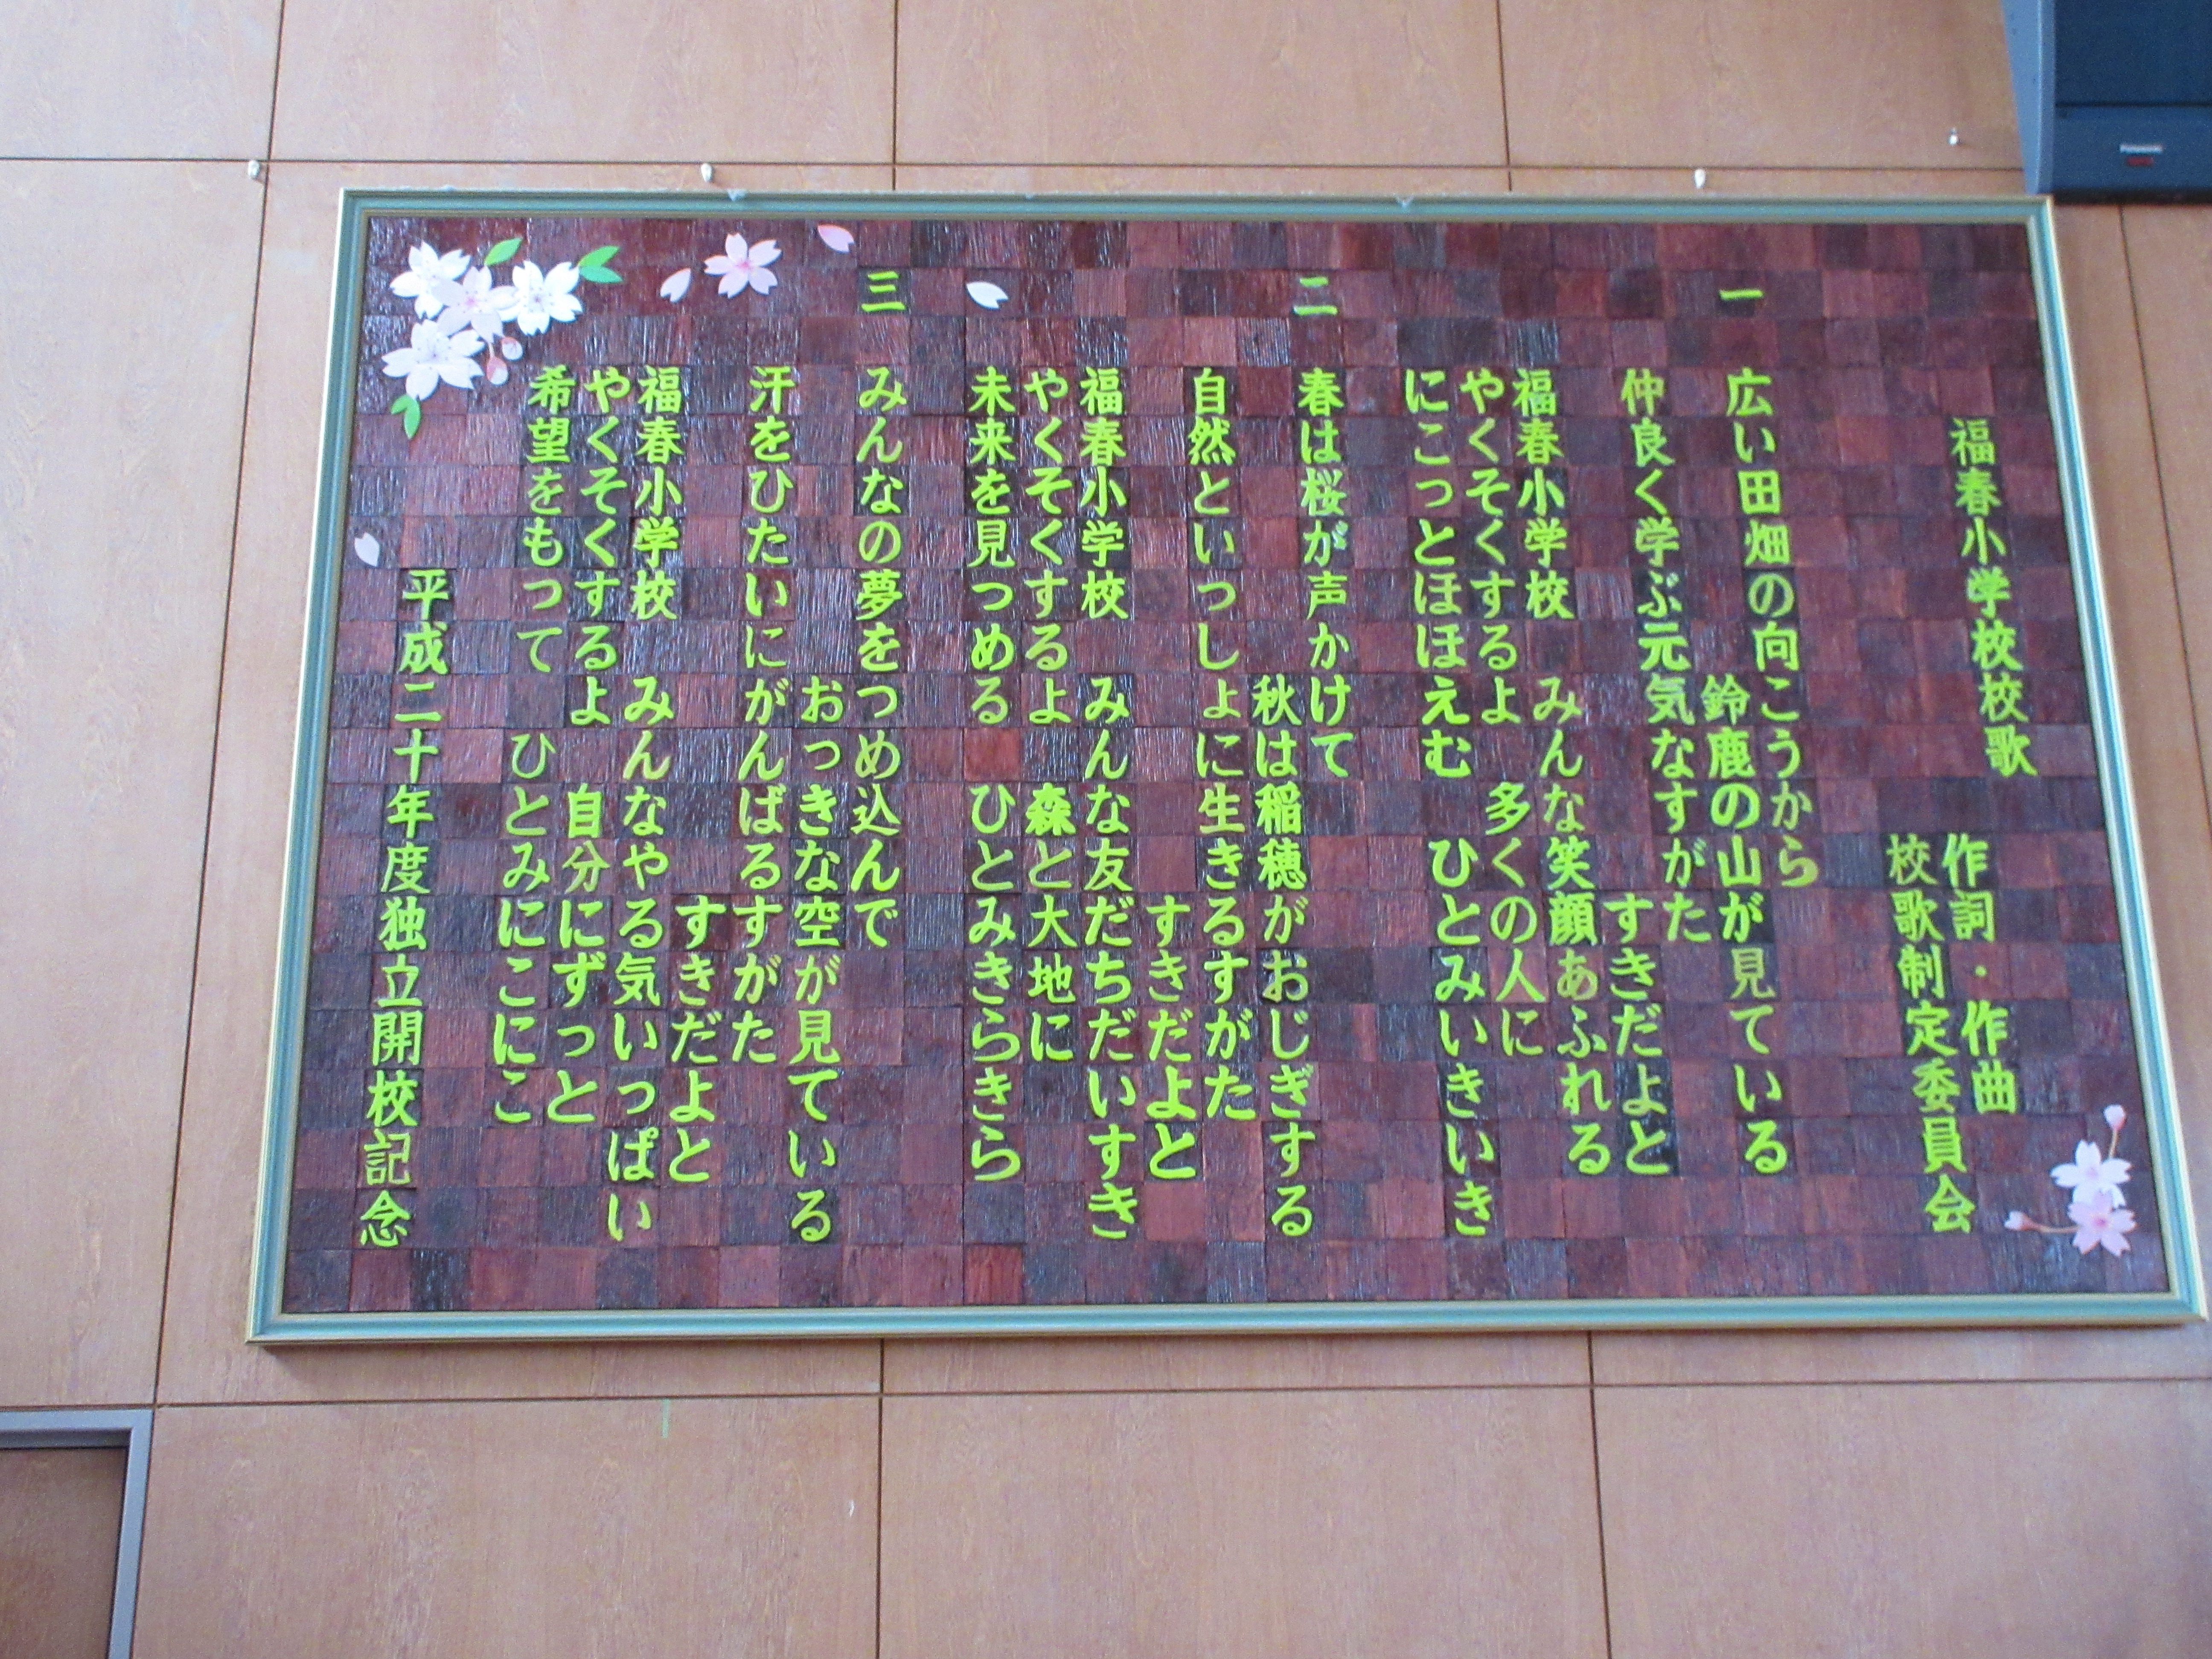 福春小学校校歌
作詞・作曲
校歌制定委員会
一
広い田畑の向こうから
鈴鹿の山が見ている
仲良く学ぶ元気なすがた
すきだよと
福春小学校 みんな笑顔あふれる
やくそくするよ 多くの人に
にこっとほほえむ ひとみいきいき
二
春は桜が声かけて
秋は稲穂がおじぎする
自然といっしょに生きるすがた
すきだよと
福春小学校 みんな友だちだいすき
やくそくするよ 森と大地に
未来を見つめる ひとみきらきら
三
みんなの夢をつめ込んで
おっきな空が見ている
汗をひたいにがんばるすがた
すきだよと
福春小学校 みんなやる気いっぱい
やくそくするよ 自分にずっと
希望をもって ひとみにこにこ
平成二十年度独立開校記念